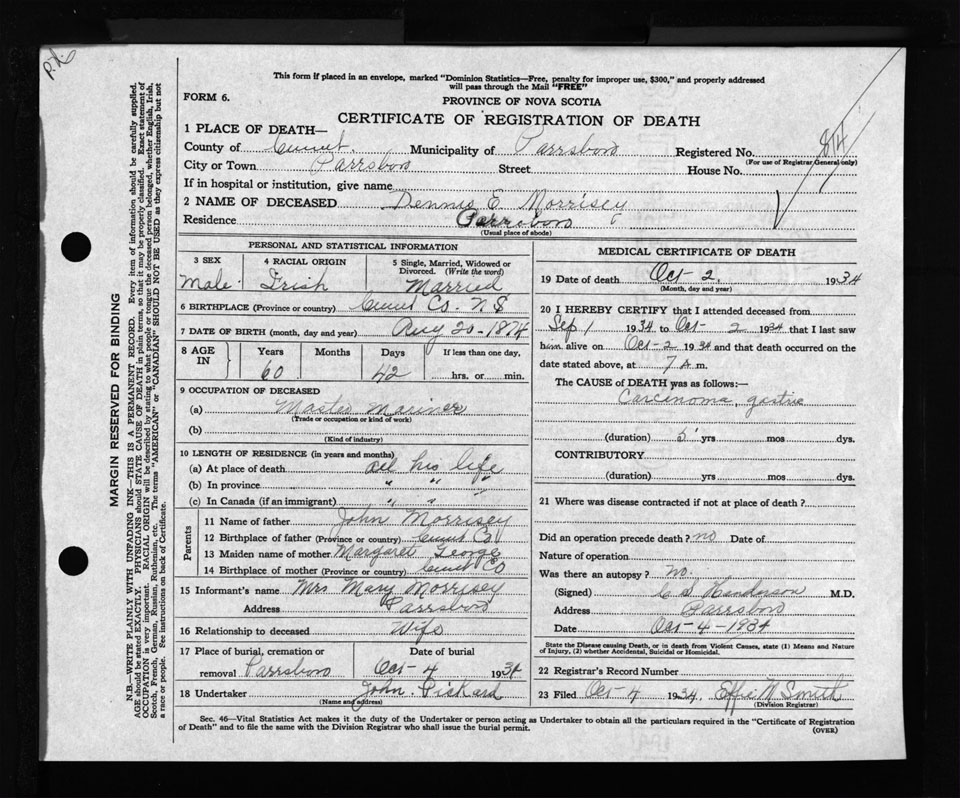 P.d.
This form if placed in an envelope, marked "Dominion Statistics—Free, penalty for improper use, $300," and properly addressed
will pass through the Mail "FREE"
FORM 6.
PROVINCE OF NOVA SCOTIA
CERTIFICATE OF REGISTRATION OF DEATH
1 PLACE OF DEATH—
County of Cumb. Municipality of Parrsboro Registered No.
(For use of Registrar General only)
City or Town Parrsboro Street House No.
If in hospital or institution, give name
2 NAME OF DECEASED Dennis E. Morrisey
Residence Parrsboro
(Usual place of abode)
PERSONAL AND STATISTICAL INFORMATION
3 SEX 4 RACIAL ORIGIN 5 Single, Married, Widowed or
Divorced. (Write the word)
Male. Irish Married
6 BIRTHPLACE (Province or country) Cumb Co. N S
7 DATE OF BIRTH (month, day and year) Aug 20 - 1874
8 AGE IN Years Months Days If less than one day,
60 42 hrs. or min.
9 OCCUPATION OF DECEASED
(a) Master Mariner
(Trade or occupation or kind of work)
(b)
(Kind of industry)
10 LENGTH OF RESIDENCE (in years and months)
(a) At place of death all his life
(b) In province " " "
(c) In Canada (if an immigrant) " " "
Parents
11 Name of father John Morrisey
12 Birthplace of father (Province or country) Cumb Co
13 Maiden name of mother Margaret George
14 Birthplace of mother (Province or country) Cumb Co
15 Informant's name Mrs Mary Morrisey
Address Parrsboro
16 Relationship to deceased Wife
17 Place of burial, cremation or Date of burial
removal Parrsboro Oct 4 1934
18 Undertaker John Pickard
(Name and address)
MEDICAL CERTIFICATE OF DEATH
19 Date of death Oct - 2, 1934
(Month, day and year)
20 I HEREBY CERTIFY that I attended deceased from
Sep 1 1934 to Oct - 2 1934 that I last saw
him alive on Oct - 2 1934 and that death occurred on the
date stated above, at 7 a m.
The CAUSE of DEATH was as follows:—
Carcinoma, gastric
(duration) 5 yrs mos dys.
CONTRIBUTORY
(duration) yrs mos dys.
21 Where was disease contracted if not at place of death?
Did an operation precede death? no Date of
Nature of operation
Was there an autopsy? no.
(Signed) C S Henderson M.D.
Address Parrsboro
Date Oct - 4 - 1934
State the Disease causing Death, or in death from Violent Causes, state (1) Means and Nature
of Injury, (2) whether Accidental, Suicidal or Homicidal.
22 Registrar's Record Number
23 Filed Oct - 4 1934. Effie N Smith
(Division Registrar)
Sec. 46—Vital Statistics Act makes it the duty of the Undertaker or person acting as Undertaker to obtain all the particulars required in the "Certificate of Registration
of Death" and to file the same with the Division Registrar who shall issue the burial permit. (OVER)
MARGIN RESERVED FOR BINDING
N.B.—WRITE PLAINLY WITH UNFADING INK—THIS IS A PERMANENT RECORD. Every item of information should be carefully supplied.
AGE should be stated EXACTLY. PHYSICIANS should STATE CAUSE OF DEATH in plain terms, so that it may be properly classified. Exact statement of
OCCUPATION is very important. RACIAL ORIGIN will be described by stating to what people or tongue the deceased person belonged, whether English, Irish,
Scotch, French, German, Russian, Ruthenian, etc. The terms "AMERICAN" or "CANADIAN" SHOULD NOT BE USED as they express citizenship but not
a race or people. See instructions on back of Certificate.